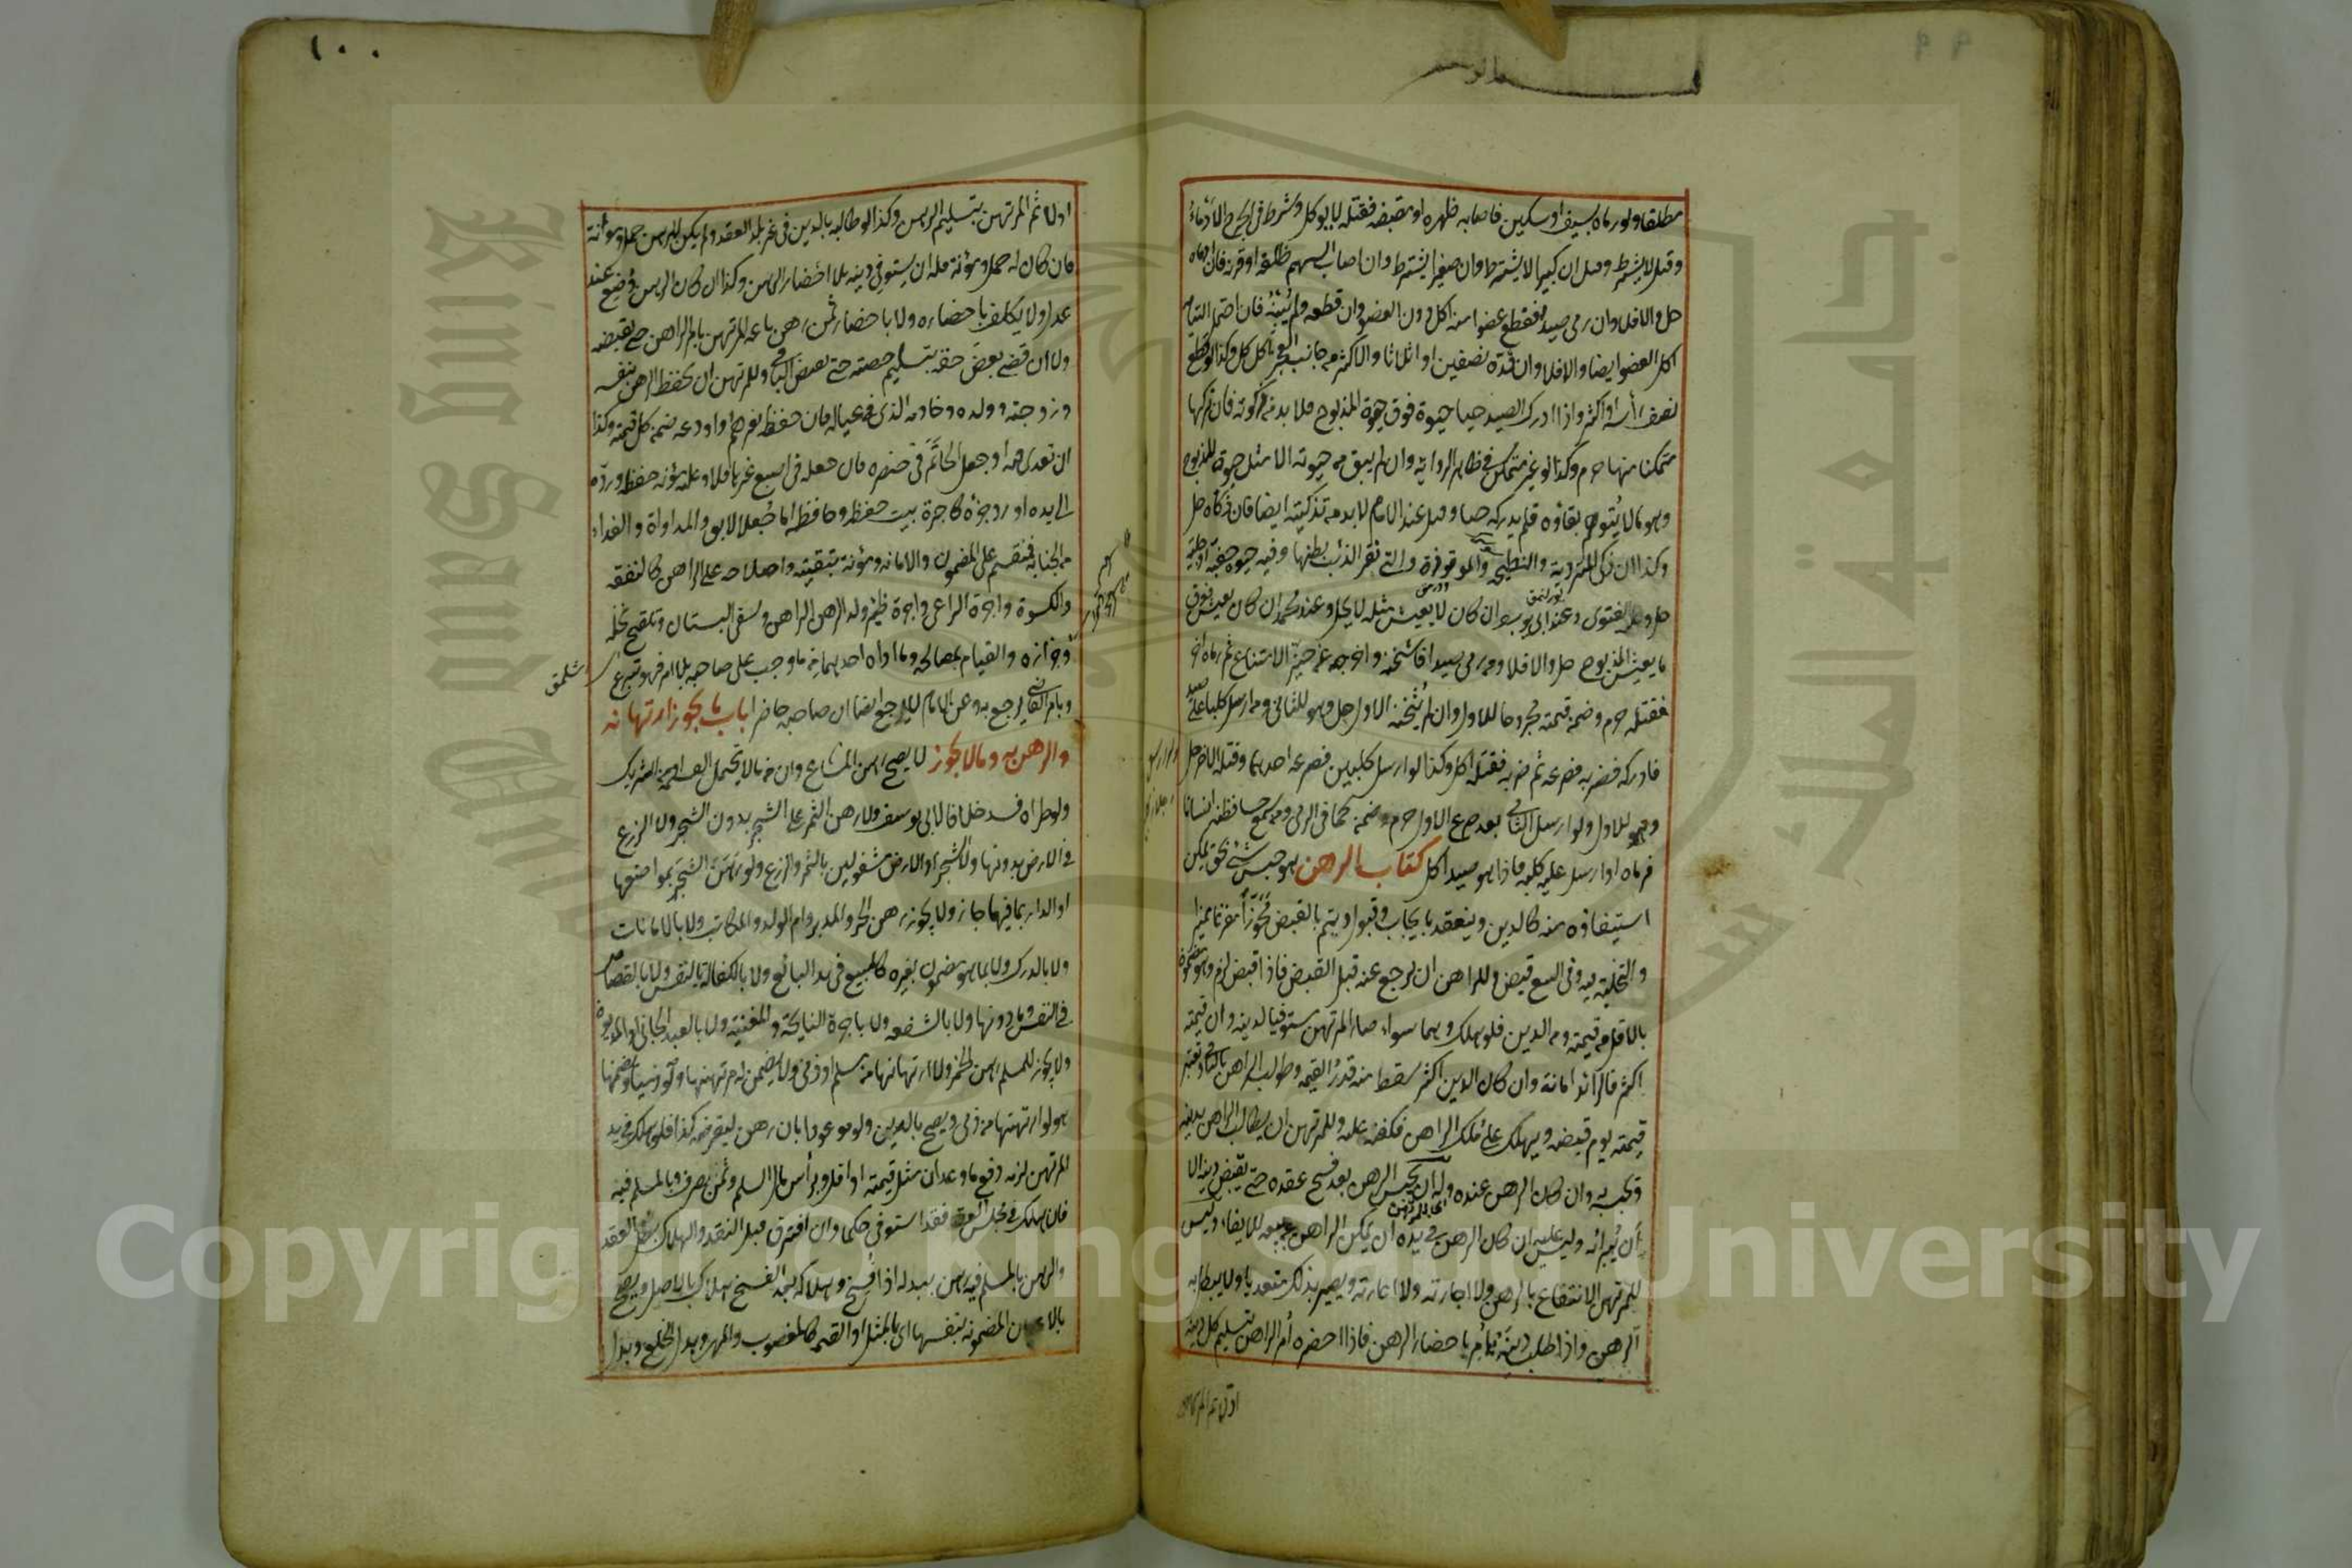 مطلقا ولو رماه بسيف او سكين فاصابه ظهره او مقبضه فقتله لا يوكل وشرط في الجرح الادماء
وقيل لا يشترط وقيل ان كبيرا لا يشترط وان صغيرا يشترط وان اصاب السهم ظلفه او قرنه فان ادماه
حل والا فلا وان رمى صيدا فقطع عضوا منه اكل دون العضو وان قطعه ولم يبنه فان احتمل التيامه
اكل العضو ايضا والا فلا وان قده نصفين او اثلاثا والاكثر من جانب العجز اكل كل وكذا لو قطع
نصف رأسه او اكثر واذا ادرك الصيد حيا حيوة فوق حيوة المذبوح فلا بد من ذكوته فان تركها
متمكنا منها حرم وكذا لو غير متمكن في ظاهر الرواية وان لم يبق من حيوته الا مثل حيوة المذبوح
وهو ما لا يتوهم بقاؤه فلم يدركه حيا وقيل عند الامام لا بد من تذكيته ايضا فان ذكاه حل
وكذا ان ذكى المتردية والنطيحة والموقوذة والتي بقر الذئب بطنها وفيه حيوة خفية او جلية
حل وعليه الفتوى وعند ابي يوسف ان كان لا يعيش مثله لا يحل وعند محمد ان كان يعيش فوق
ما يعيش المذبوح حل والا فلا ومن رمى صيدا فاثخنه واخرجه عن حيز الامتناع ثم رماه اخر
فقتله حرم وضمن قيمته مجروحا للاول وان لم يثخنه الاول حل وهو للثاني ومن ارسل كلبا على صيد
فادركه فضربه فصرعه ثم ضربه فقتله اكل وكذا لو ارسل كلبين فصرعه احدهما وقتله الاخر حل
وهو للاول ولو ارسل الثاني بعد صرع الاول حرم وضمن كما في الرمي ومن سمع حسا فظنه انسانا
فرماه او ارسل عليه كلبه فاذا هو صيد اكل كتاب الرهن هو حبس شئ بحق يمكن
استيفاؤه منه كالدين وينعقد بايجاب وقبول ويتم بالقبض محوزا مفرغا مميزا
والتخلية فيه وفي البيع قبض وللراهن ان يرجع عنه قبل القبض فاذا قبض لزم وهو مضمون
بالاقل من قيمته ومن الدين فلو هلك وهما سواء صار المرتهن مستوفيا لدينه وان قيمته
اكثر فالزائد امانة وان كان الدين اكثر سقط منه قدر القيمة وطولب الراهن بالباقي وتعتبر
قيمته يوم قبضه ويهلك على ملك الراهن فكفنه عليه وللمرتهن ان يطالب الراهن بدينه
ويحبسه به وان كان الرهن عنده وله ان يحبس الرهن بعد فسخ عقده حتى يقبض دينه الا
ان يبرئه وليس عليه ان كان الرهن في يده ان يمكن الراهن من بيعه للايفاء وليس
للمرتهن الانتفاع بالرهن ولا اجارته ولا اعارته ويصير بذلك متعديا ولا يبطل به
الرهن واذا طلب دينه يؤمر باحضار الرهن فاذا احضره امر الراهن بتسليم كل دينه
١٠٠
اولا ثم المرتهن بتسليم الرهن وكذا لو طالبه بالدين في غير بلد العقد ولم يكن للرهن حمل ومؤنة
فان كان له حمل ومؤنة فله ان يستوفي دينه بلا احضار الرهن وكذا ان كان الرهن وضع عند
عدل ولا يكلف باحضاره ولا باحضار ثمن رهن باعه المرتهن بامر الراهن حتى يقبضه
ولا ان قضى بعض حقه بتسليم حصته حتى يقبض الباقي وللمرتهن ان يحفظ الرهن بنفسه
وزوجته وولده وخادمه الذي في عياله فان حفظ بغيرهم او اودعه ضمن كل قيمته وكذا
ان تعدى فيه او جعل الخاتم في خنصره فان جعله في اصبع غيرها فلا وعليه مؤنة حفظه ورده
الى يده او رد جزئه كاجرة بيت حفظه وحافظه اما جعل الابق والمداواة والفداء
من الجناية فتقسم على المضمون والامانة ومؤنة تبقيته واصلاحه على الراهن كالنفقة
والكسوة واجرة الراعي واجرة ظئر ولد الرهن الراهن وسقي البستان وتلقيح نخله
وجزازه والقيام بمصالحه وما اداه احدهما مما وجب على صاحبه بلا امر فهو تبرع
وبامر القاضي يرجع به وعن الامام لا يرجع ايضا ان صاحبه حاضرا باب ما يجوز ارتهانه
والرهن به وما لا يجوز لا يصح رهن المشاع وان مما لا يحتمل القسمة او من الشريك
ولو طرأ فسد خلافا لابي يوسف ولا رهن الثمر على الشجر بدون الشجر ولا الزرع
في الارض بدونها ولا الشجر او الارض مشغولين بالثمر والزرع ولو رهن الشجر بمواضعها
او الدار بما فيها جاز ولا يجوز رهن الحر والمدبر وام الولد والمكاتب ولا بالامانات
ولا بالدرك ولا بما هو مضمون بغيره كالمبيع في يد البائع ولا بالكفالة بالنفس ولا بالقصاص
في النفس وما دونها ولا بالشفعة ولا باجرة النايحة والمغنية ولا بالعبد الجاني او المديون
ولا يجوز للمسلم رهن الخمر ولا ارتهانها من مسلم او ذمي ولا يضمن له مرتهنها ولو ذميا ويضمنها
هو لو ارتهنها من ذمي ويصح بالدين ولو موعودا بان رهن ليقرضه كذا فلو هلك في يد
المرتهن لزمه دفع ما وعد ان مثل قيمته او اقل وبرأس مال السلم وثمن الصرف وبالمسلم فيه
فان هلك في مجلس العقد فقد استوفى حكما وان افترقا قبل النقد والهلاك بطل العقد
والرهن بالمسلم فيه رهن ببدله اذا فسخ وهلاكه بعد الفسخ هلاك بالاصل ويصح
بالاعيان المضمونة بنفسها اي بالمثل او القيمة كالمغصوب والمهر وبدل الخلع وبدل
Copyright © King Saud University